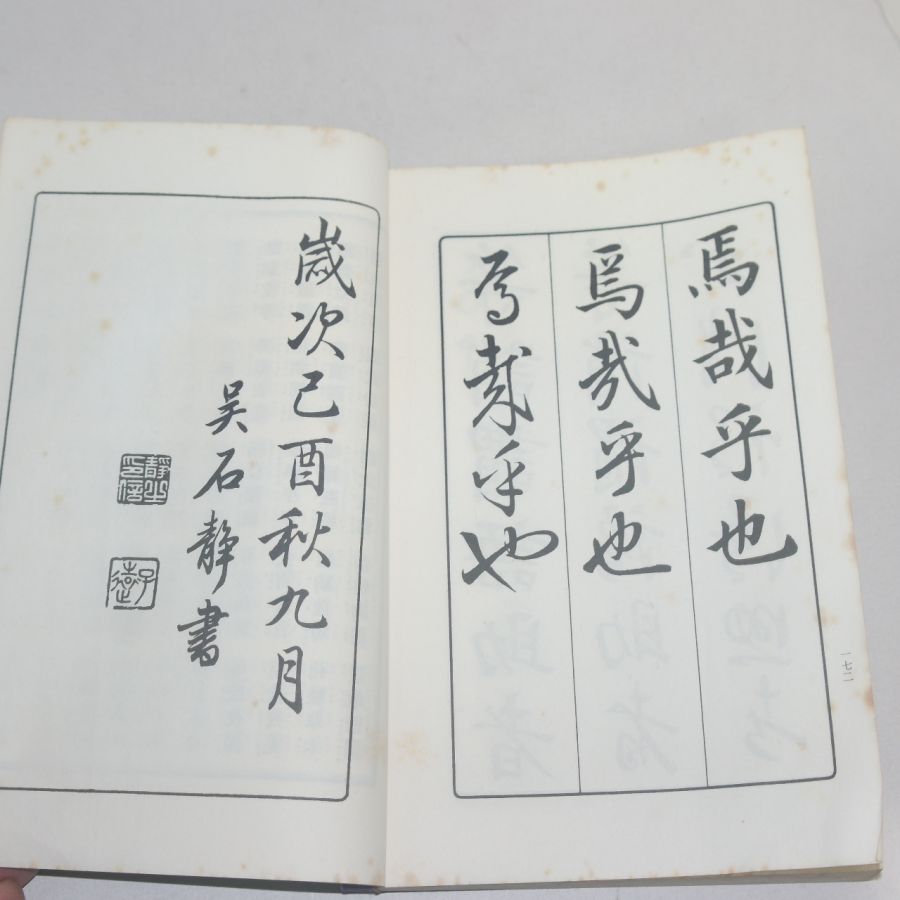 焉哉乎也
焉哉乎也
焉哉乎也
一七二
歲次己酉秋九月
吴石静書
靜坐